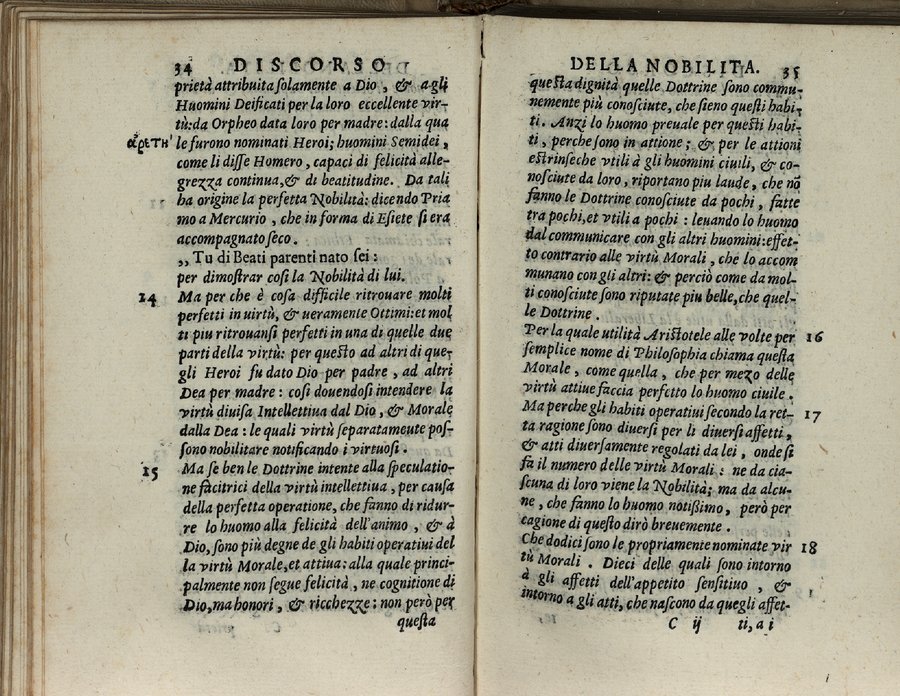 34 DISCORSO
prietà attribuita solamente a Dio, & agli
Huomini Deificati per la loro eccellente vir-
tù: da Orpheo data loro per madre: dalla qua
ἀρετή le furono nominati Heroi; huomini Semidei,
come li disse Homero, capaci di felicità alle-
grezza continua, & di beatitudine. Da tali
ha origine la perfetta Nobilità: dicendo Pria
mo a Mercurio, che in forma di Esiete si era
accompagnato seco.
,, Tu di Beati parenti nato sei:
per dimostrar così la Nobilità di lui.
14 Ma per che è cosa difficile ritrouare molti
perfetti in uirtù, & ueramente Ottimi: et mol
ti piu ritrouansi perfetti in una di quelle due
parti della virtù: per questo ad altri di que-
gli Heroi fu dato Dio per padre, ad altri
Dea per madre: così douendosi intendere la
virtù diuisa Intellettiua dal Dio, & Morale
dalla Dea: le quali virtù separatamente pos-
sono nobilitare notificando i virtuosi.
15 Ma se ben le Dottrine intente alla speculatio-
ne facitrici della virtù intellettiua, per causa
della perfetta operatione, che fanno di ridur-
re lo huomo alla felicità dell'animo, & à
Dio, sono più degne de gli habiti operatiui del
la virtù Morale, et attiua: alla quale princi-
palmente non segue felicità, ne cognitione di
Dio, ma honori, & ricchezze: non però per
questa
DELLA NOBILITA. 35
questa dignità quelle Dottrine sono commu-
nemente più conosciute, che sieno questi habi-
ti. Anzi lo huomo preuale per questi habi-
ti, perche sono in attione; & per le attioni
estrinseche vtili à gli huomini ciuili, & co-
nosciute da loro, riportano piu laude, che nō
fanno le Dottrine conosciute da pochi, fatte
tra pochi, et vtili a pochi: leuando lo huomo
dal communicare con gli altri huomini: effet-
to contrario alle virtù Morali, che lo accom
munano con gli altri: & perciò come da mol-
ti conosciute sono riputate piu belle, che quel-
le Dottrine.
Per la quale utilità Aristotele alle volte per 16
semplice nome di Philosophia chiama questa
Morale, come quella, che per mezo delle
virtù attiue faccia perfetto lo huomo ciuile.
Ma perche gli habiti operatiui secondo la ret- 17
ta ragione sono diuersi per li diuersi affetti,
& atti diuersamente regolati da lei, onde si
fa il numero delle virtù Morali: ne da cia-
scuna di loro viene la Nobilità; ma da alcu-
ne, che fanno lo huomo notißimo, però per
cagione di questo dirò breuemente.
Che dodici sono le propriamente nominate vir 18
tù Morali. Dieci delle quali sono intorno
à gli affetti dell'appetito sensitiuo, &
intorno a gli atti, che nascono da quegli affet-
C ij ti, a i